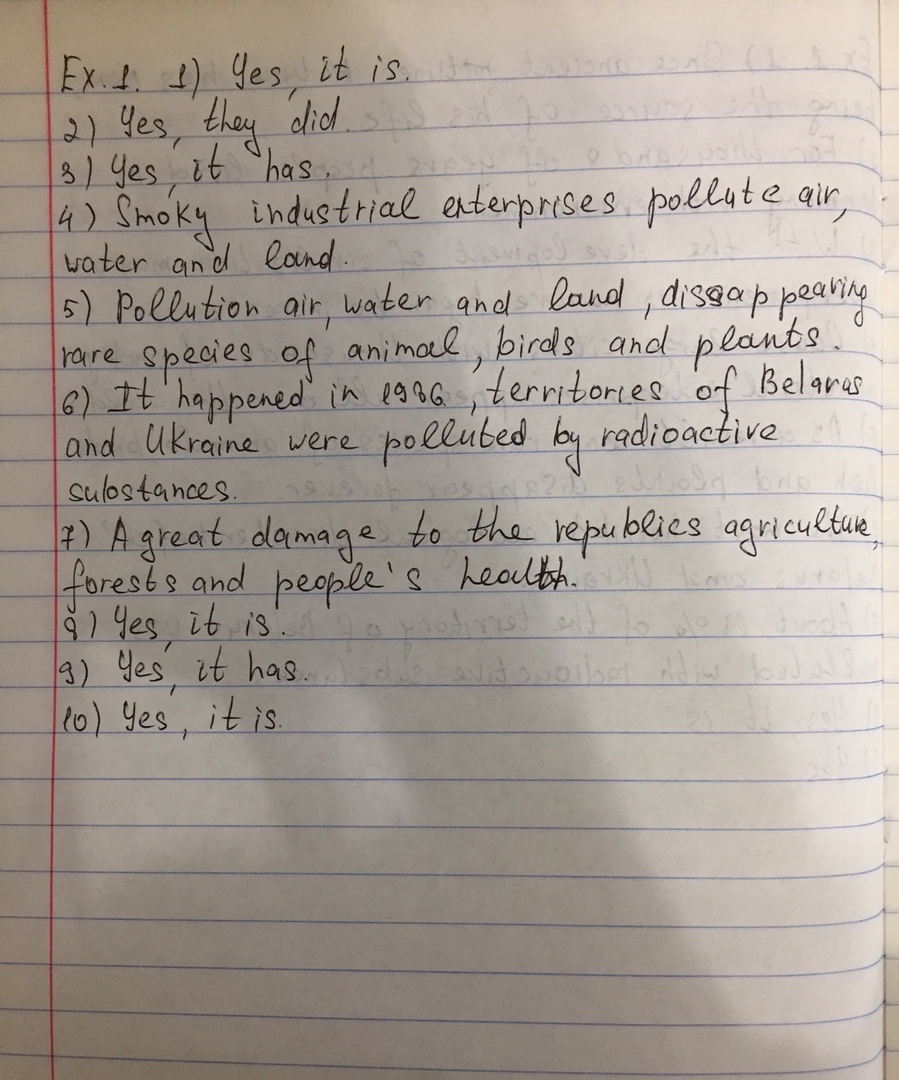 Ex.1. 1) Yes, it is.
2) Yes, they did.
3) Yes, it has.
4) Smoky industrial enterprises pollute air,
water and land.
5) Pollution air, water and land, dissappearing
rare species of animal, birds and plants.
6) It happened in 1986, territories of Belarus
and Ukraine were polluted by radioactive
substances.
7) A great damage to the republics agriculture,
forests and people's health.
8) Yes, it is.
9) Yes, it has.
10) Yes, it is.